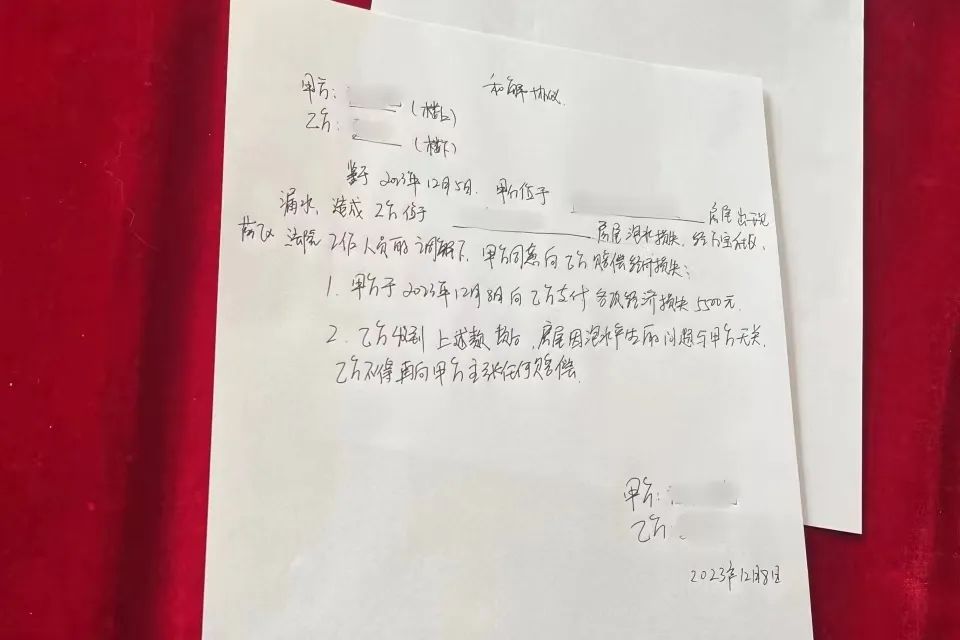 和解协议
甲方：（楼上）
乙方：（楼下）
鉴于2023年12月5日，甲方位于 房屋出现
漏水，造成乙方位于 房屋泡水损失，经
法院工作人员的调解下，甲方同意向乙方赔偿经济损失：
1. 甲方于2023年12月8日向乙方支付各项经济损失5500元。
2. 乙方收到上述款项后，房屋因泡水产生的问题与甲方无关，
乙方不得再向甲方主张任何赔偿。
甲方：
乙方：
2023年12月8日